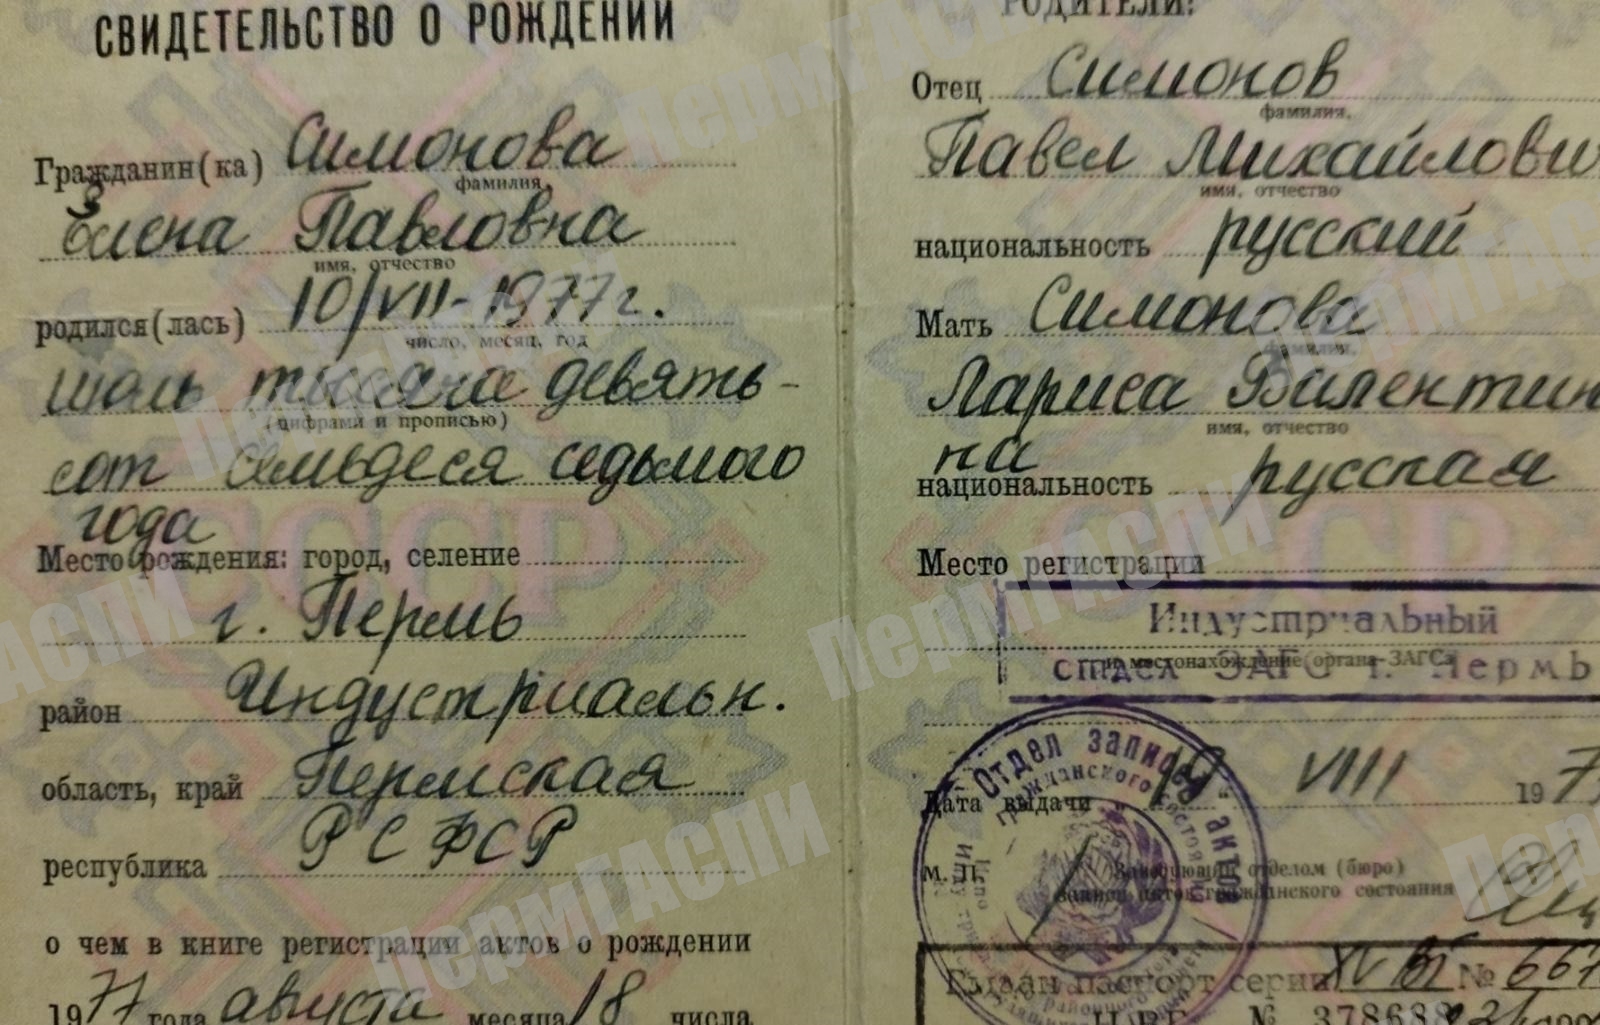 СВИДЕТЕЛЬСТВО О РОЖДЕНИИ
Гражданин(ка) Симонова
фамилия,
Елена Павловна
имя, отчество
родился(лась) 10/VII-1977г.
число, месяц, год
июль тысяча девять-
(цифрами и прописью)
сот семьдеся седьмого
года
Место рождения: город, селение
г. Пермь
район Индустриальн.
область, край Пермская
республика РСФСР
о чем в книге регистрации актов о рождении
1977 года августа месяца 18 числа
РОДИТЕЛИ:
Отец Симонов
фамилия,
Павел Михайлови
имя, отчество
национальность русский
Мать Симонова
фамилия,
Лариса Валентин
имя, отчество
на
национальность русская
Место регистрации
Индустриальный
и местонахождение органа ЗАГСа
отдел ЗАГС г. Пермь
Дата выдачи VIII 197
М. П.
Заведующий отделом (бюро)
записи актов гражданского состояния
Отдел записи актов
гражданского состояния
Выдан паспорт серии № 667
№ 378688
ПермГАСПИ
ПермГАСПИ
ПермГАСПИ
ПермГАСПИ